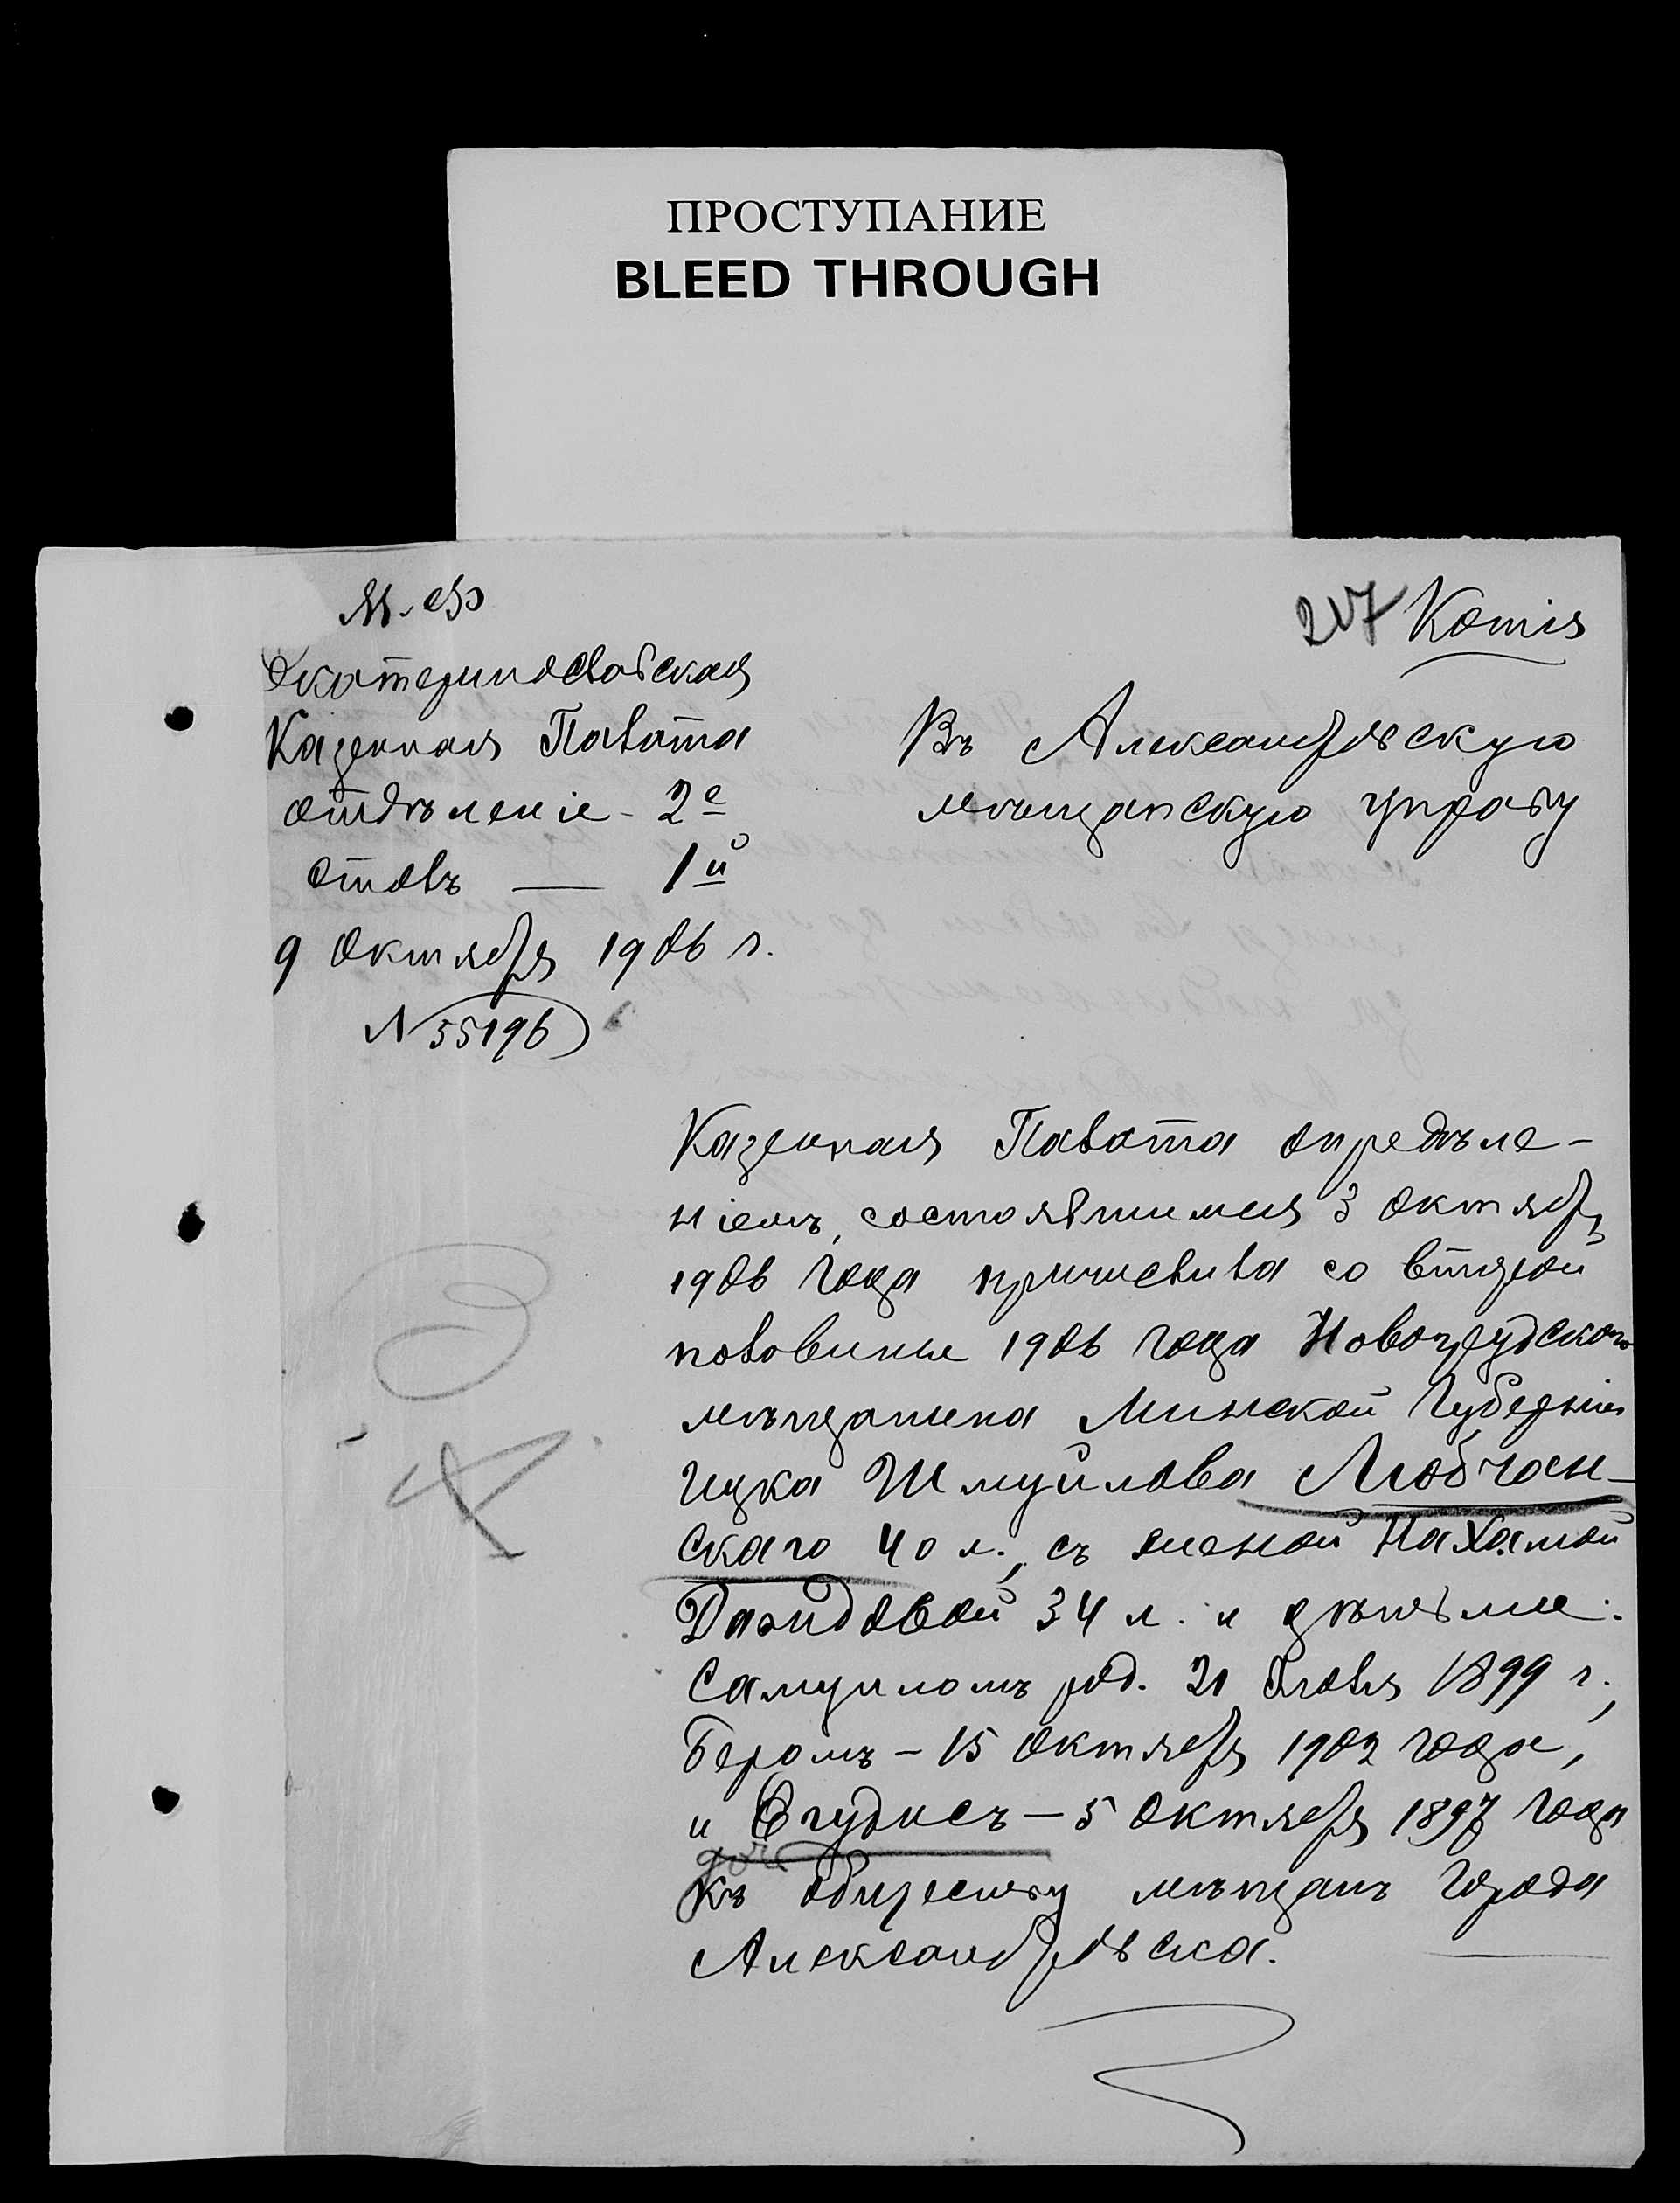 ПРОСТУПАНИЕ
BLEED THROUGH
М. Ф.
217 Копія
Екатеринославская
Казенная Палата
отдѣленіе - 2е
столъ — 1й
9 Октября 1906 г.
N 35196
Въ Александровскую
мѣщанскую управу
Казенная Палата опредѣле-
ніемъ, состоявшимся 3 Октября
1906 года причислила со второй
половины 1906 года Новогрудскаго
мѣщанина Минской Губерніи
Ицка Шмуйлова Любчан-
скаго 40 л., съ женой Нахамой
Давидовой 34 л. и дѣтьми:
Самуиломъ род. 21 Іюля 1899 г.,
Беромъ - 15 Октября 1902 года,
и Егудисъ - 5 Октября 1897 года
къ обществу мѣщанъ города
Александровска.